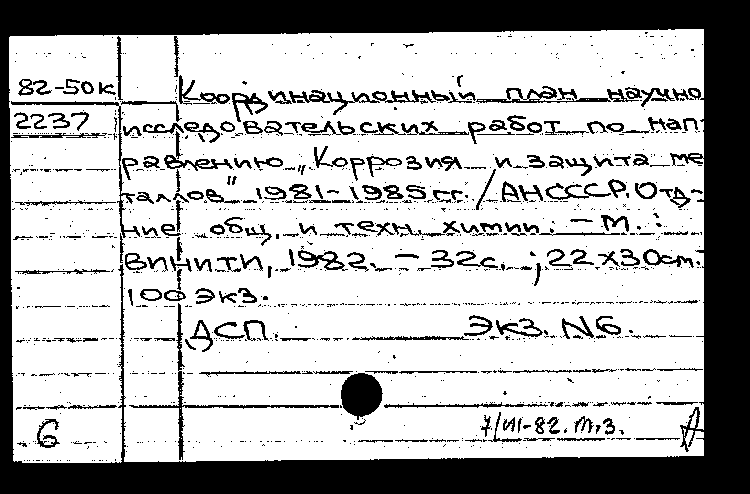 82-50к Координационный план научно
2237 исследовательских работ по нап-
равлению „Коррозия и защита ме
таллов" 1981-1985 гг. / АН СССР. Отд-
ние общ. и техн. химии. – М.:
ВИНИТИ, 1982. – 32с. ; 22 х 30 см. -
100 экз.
ДСП. Экз. N6.
6 7/VII-82. М.З.